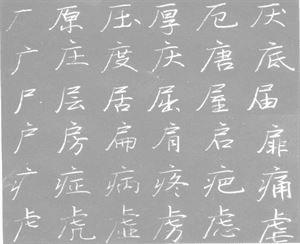 厂 原 压 厚 厄 厌
广 庄 度 庆 唐 底
尸 层 居 屈 屋 届
户 房 扁 肩 启 扉
疒 症 病 疼 疤 痛
虍 虎 虚 虏 虑 虐